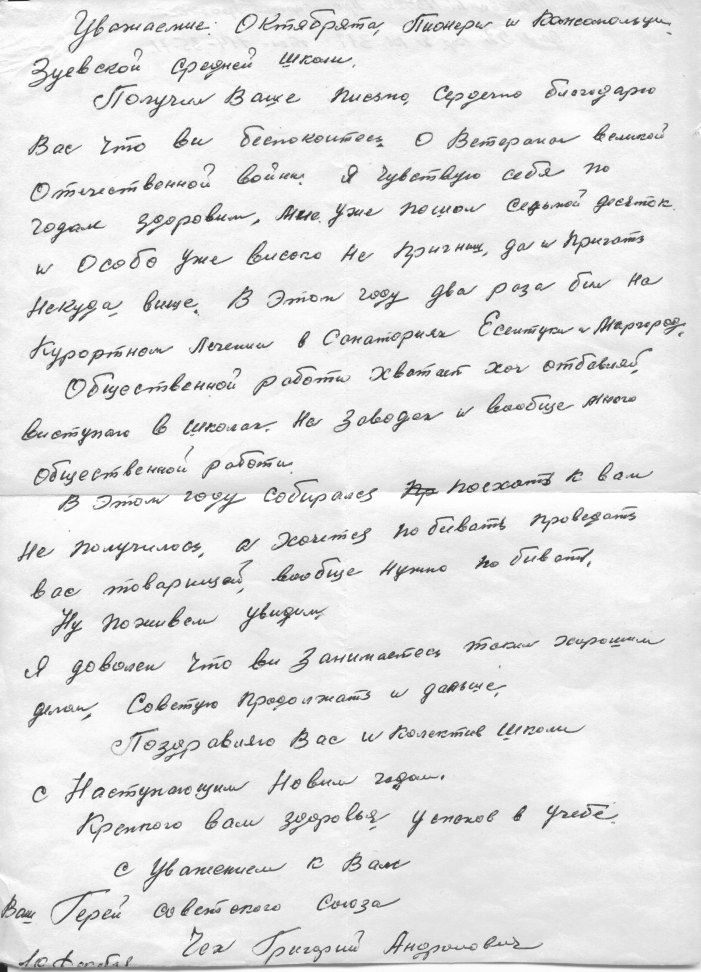 Уважаемие Октябрята, Пионери и Комсомольци
Зуевской средней школи.
Получил Ваще письмо, Сердечно благодарю
Вас что ви беспокоитесь о Ветеранах великой
Отечественной войни. Я чувствую себя по
годам здоровим, мне уже пошол седьмой десяток
и Особо уже високо не пригниш, да и пригать
некуда више. В этом году два раза бил на
Курортном лечении в Санаториях Есентуки и Миргород.
Общественной работи хватает хоч отбавляй,
виступаю в школах. На Заводах и вообще много
общественной работи.
В этом году собирался поехать к вам
не получилось, а хочется побивать проведать
вас товарищей, вообще нужно побивать.
Ну поживем увидим.
Я доволен что ви Занимаетесь таким хорошим
делом, Советую продолжать и дальше.
Поздравляю Вас и Колектив школи
с Наступающим Новим годом.
Крепкого вам здоровья успехов в учебе.
с Уважением к Вам
Ваш Герой советского Союза
Чех Григорий Андронович